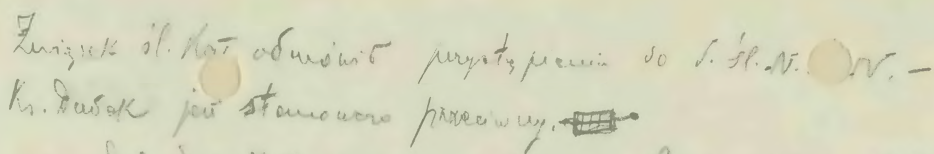 Związek śl. Kat odmówił przystąpienia do S. śl. N. N. —
Ks. Dudek jest stanowczo przeciwny.